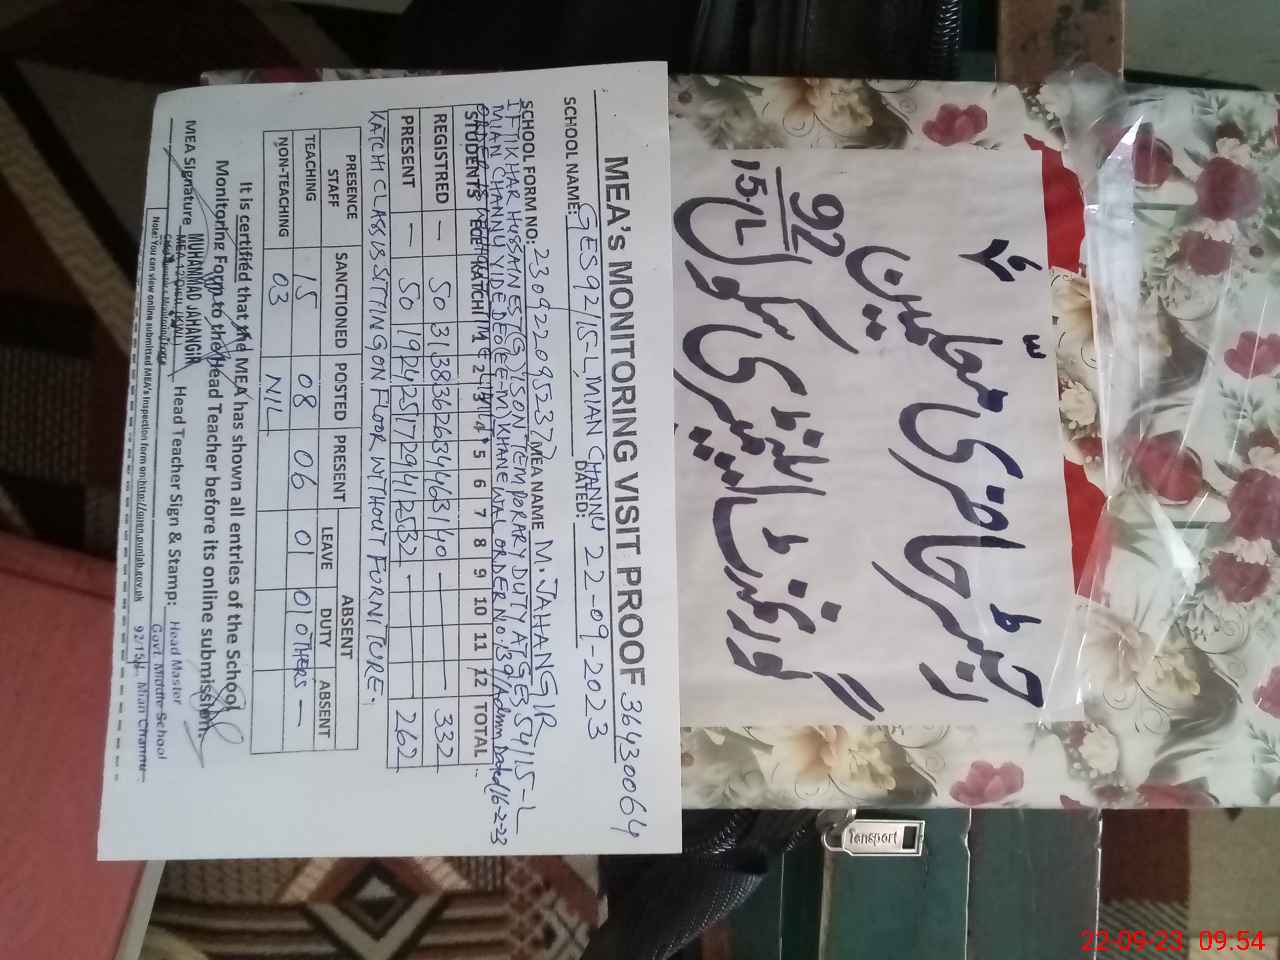 MEA's MONITORING VISIT PROOF 36430064
SCHOOL NAME: GES 92/15-L, MIAN CHANNU DATED: 22-09-2023
SCHOOL FORM NO: 230922095237 MEA NAME M. JAHANGIR
IFTIKHAR HUSSAIN ESTG IS ON TEMPORARY DUTY AT GES 54/15-L
MIAN CHANNU VIDE DEO EE-M KHANEWAL ORDER NO: 139/Admn Dated 16-2-23
STUDENTS ECE KATCHI 1 2 3 4 5 6 7 8 9 10 11 12 TOTAL
REGISTRED — 50 31 38 36 26 34 46 31 40 — — — — 332
PRESENT — 50 19 24 25 17 29 41 25 32 — — — — 262
KATCHI CLASS IS SITTING ON FLOOR WITHOUT FORNITURE.
PRESENCE STAFF SANCTIONED POSTED PRESENT ABSENT
LEAVE DUTY OTHERS ABSENT
TEACHING 15 08 06 01 01 —
NON-TEACHING 03 NIL
It is certified that the MEA has shown all entries of the School
Monitoring Form to the Head Teacher before its online submission.
MEA Signature MUHAMMAD JAHANGIR Head Teacher Sign & Stamp: Head Master
Govt. Middle School
92/15-L Mian Channu
Note: You can view online submitted MEA's inspection form on:http://open.punjab.gov.pk
رجسٹر حاضری معلمین
گورنمنٹ ایلیمنٹری سکول
92
15/L
Tansport
22-09-23 09:54